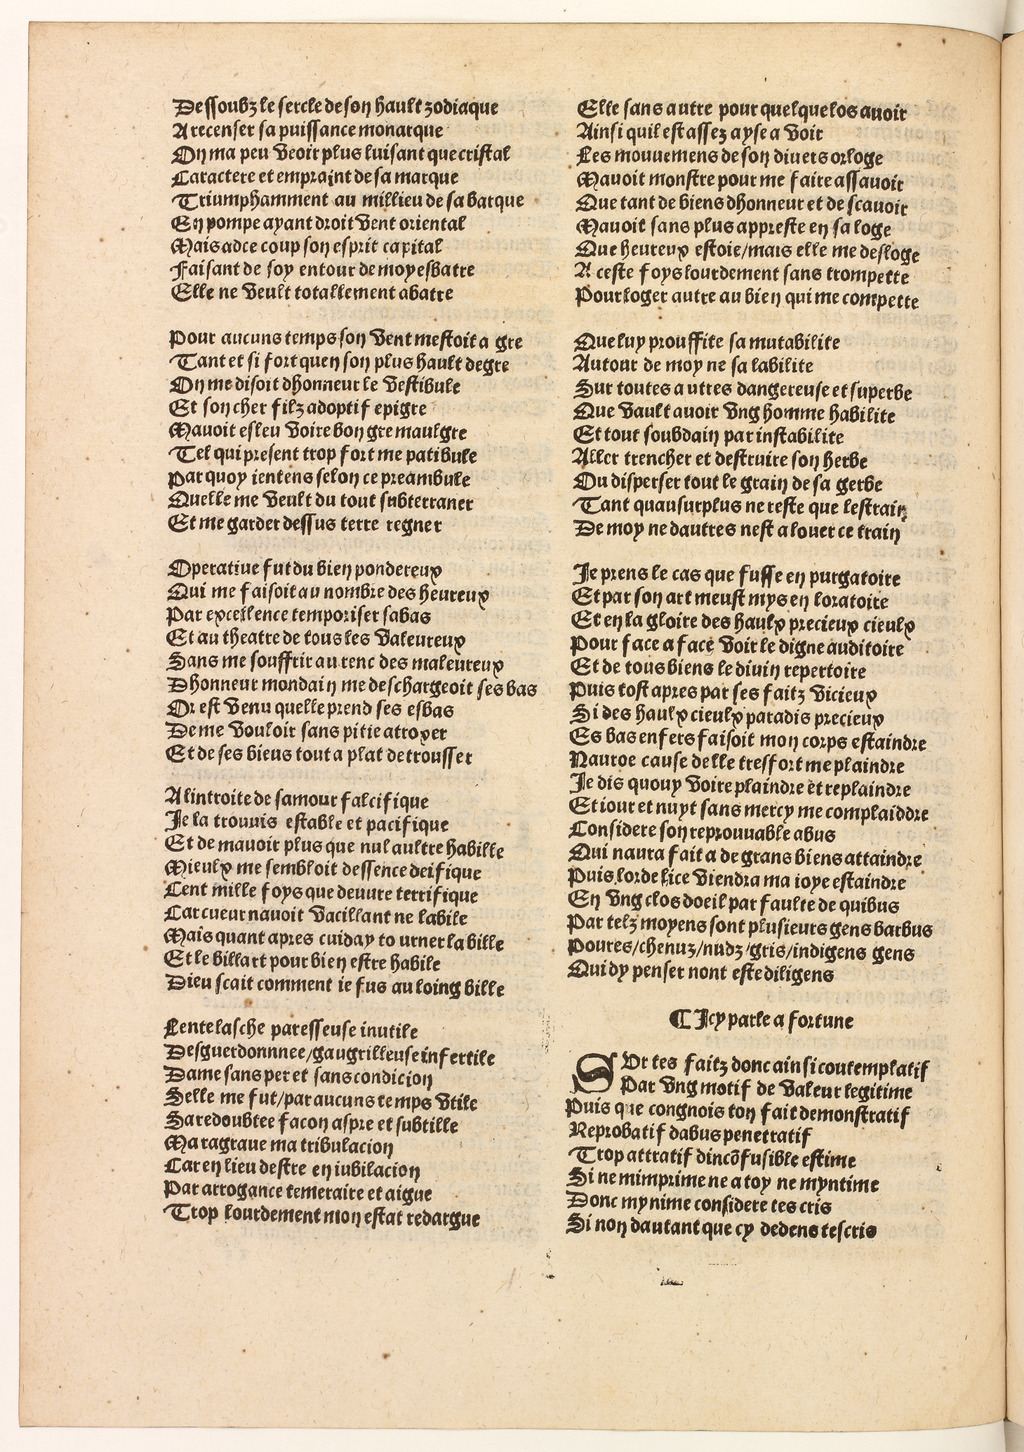 Dessoubz le sercle de son hault zodiaque
A recenser sa puissance monarque
On ma peu veoir plus luisant que cristal
Caractere et empraint de sa marque
Triumphamment au millieu de sa barque
En pompe ayant droit vent oriental
Mais adce coup son esprit capital
Faisant de soy entour de moy esbatre
Elle ne veult totallement abatre

Pour aucuns temps son vent mestoit a gre
Tant et si fort quen son plus hault degre
On me disoit dhonneur le vestibule
Et son cher filz adoptif epigre
Mauoit esleu voire bon gre maulgre
Tel qui present trop fort me patibule
Par quoy ientens selon ce preambule
Quelle me veult du tout subterraner
Et me garder dessus terre regner

Operatiue fut du bien pondereux
Qui me faisoit au nombre des heureux
Par excellence temporiser sabas
Et au theatre de tous les valeureux
Sans me souffrir au renc des maleureux
Dhonneur mondain me deschargeoit ses bas
Or est venu quelle prend ses esbas
De me vouloir sans pitie atroper
Et de ses bieus tout a plat detrousser

A lintroite de samour falcifique
Je la trouuis estable et pacifique
Et de mauoir plus que nul aultre habille
Mieulx me sembloit dessence deifique
Cent mille foys que deuure terrifique
Car cueur nauoit vacillant ne labile
Mais quant apres cuiday to urner la bille
Et le billart pour bien estre habile
Dieu scait comment ie fus au loing bille

Lente lasche paresseuse inutile
Desguerdonnnee/gaugrilleuse infertile
Dame sans per et sans condicion
Selle me fut/par aucuns temps vtile
Sa redoubtee facon aspre et subtille
Ma ragraue ma tribulacion
Car en lieu destre en iubilacion
Par arrogance temeraire et aigue
Trop lourdement mon estat redargue

Elle sans autre pour quelque los auoir
Ainsi quil est assez ayse a voir
Les mouuemens de son diuers orloge
Mauoit monstre pour me faire assauoir
Que tant de biens dhonneur et de scauoir
Mauoit sans plus appreste en sa loge
Que heureux estoie/mais elle me desloge
A ceste foys lourdement sans trompette
Pour loger autre au bien qui me compette

Que luy prouffite sa mutabilite
Autour de moy ne sa labilite
Sur toutes autres dangereuse et superbe
Que vault auoir vng homme habilite
Et tout soubdain par instabilite
Aller trencher et destruire son herbe
Ou disperser tout le grain de sa gerbe
Tant quau surplus ne reste que lestrain
De moy ne dautres nest a louer ce train

Je prens le cas que fusse en purgatoire
Et par son art meust mys en loratoire
Et en la gloire des haulx precieux cieulx
Pour face a face voir le digne auditoire
Et de tous biens le diuin repertoire
Puis tost apres par ses faitz vicieux
Si des haulx cieulx paradis precieux
Es bas enfers faisoit mon corps estaindre
Nauroe cause delle tresfort me plaindre
Je dis quouy voire plaindre et replaindre
Et iour et nuyt sans mercy me complaiddre
Considere son reprouuable abus
Qui naura fait a de grans biens attaindre
Puis lorde lice viendra ma ioye estaindre
En vng clos doeil par faulte de quibus
Par telz moyens sont plusieurs gens barbus
Poures/chenuz/nudz/gris/indigens gens
Qui dy penser nont este diligens

¶ Icy parle a fortune

SVr tes faitz donc ainsi coutemplatif
Par vng motif de valeur legitime
Puis que congnois ton fait demonstratif
Reprobatif dabus penetratif
Trop attratif dincõfusible estime
Si ne mimprime ne a toy ne myntime
Donc my nime considere tes cris
Si non dautant que cy dedens tescris